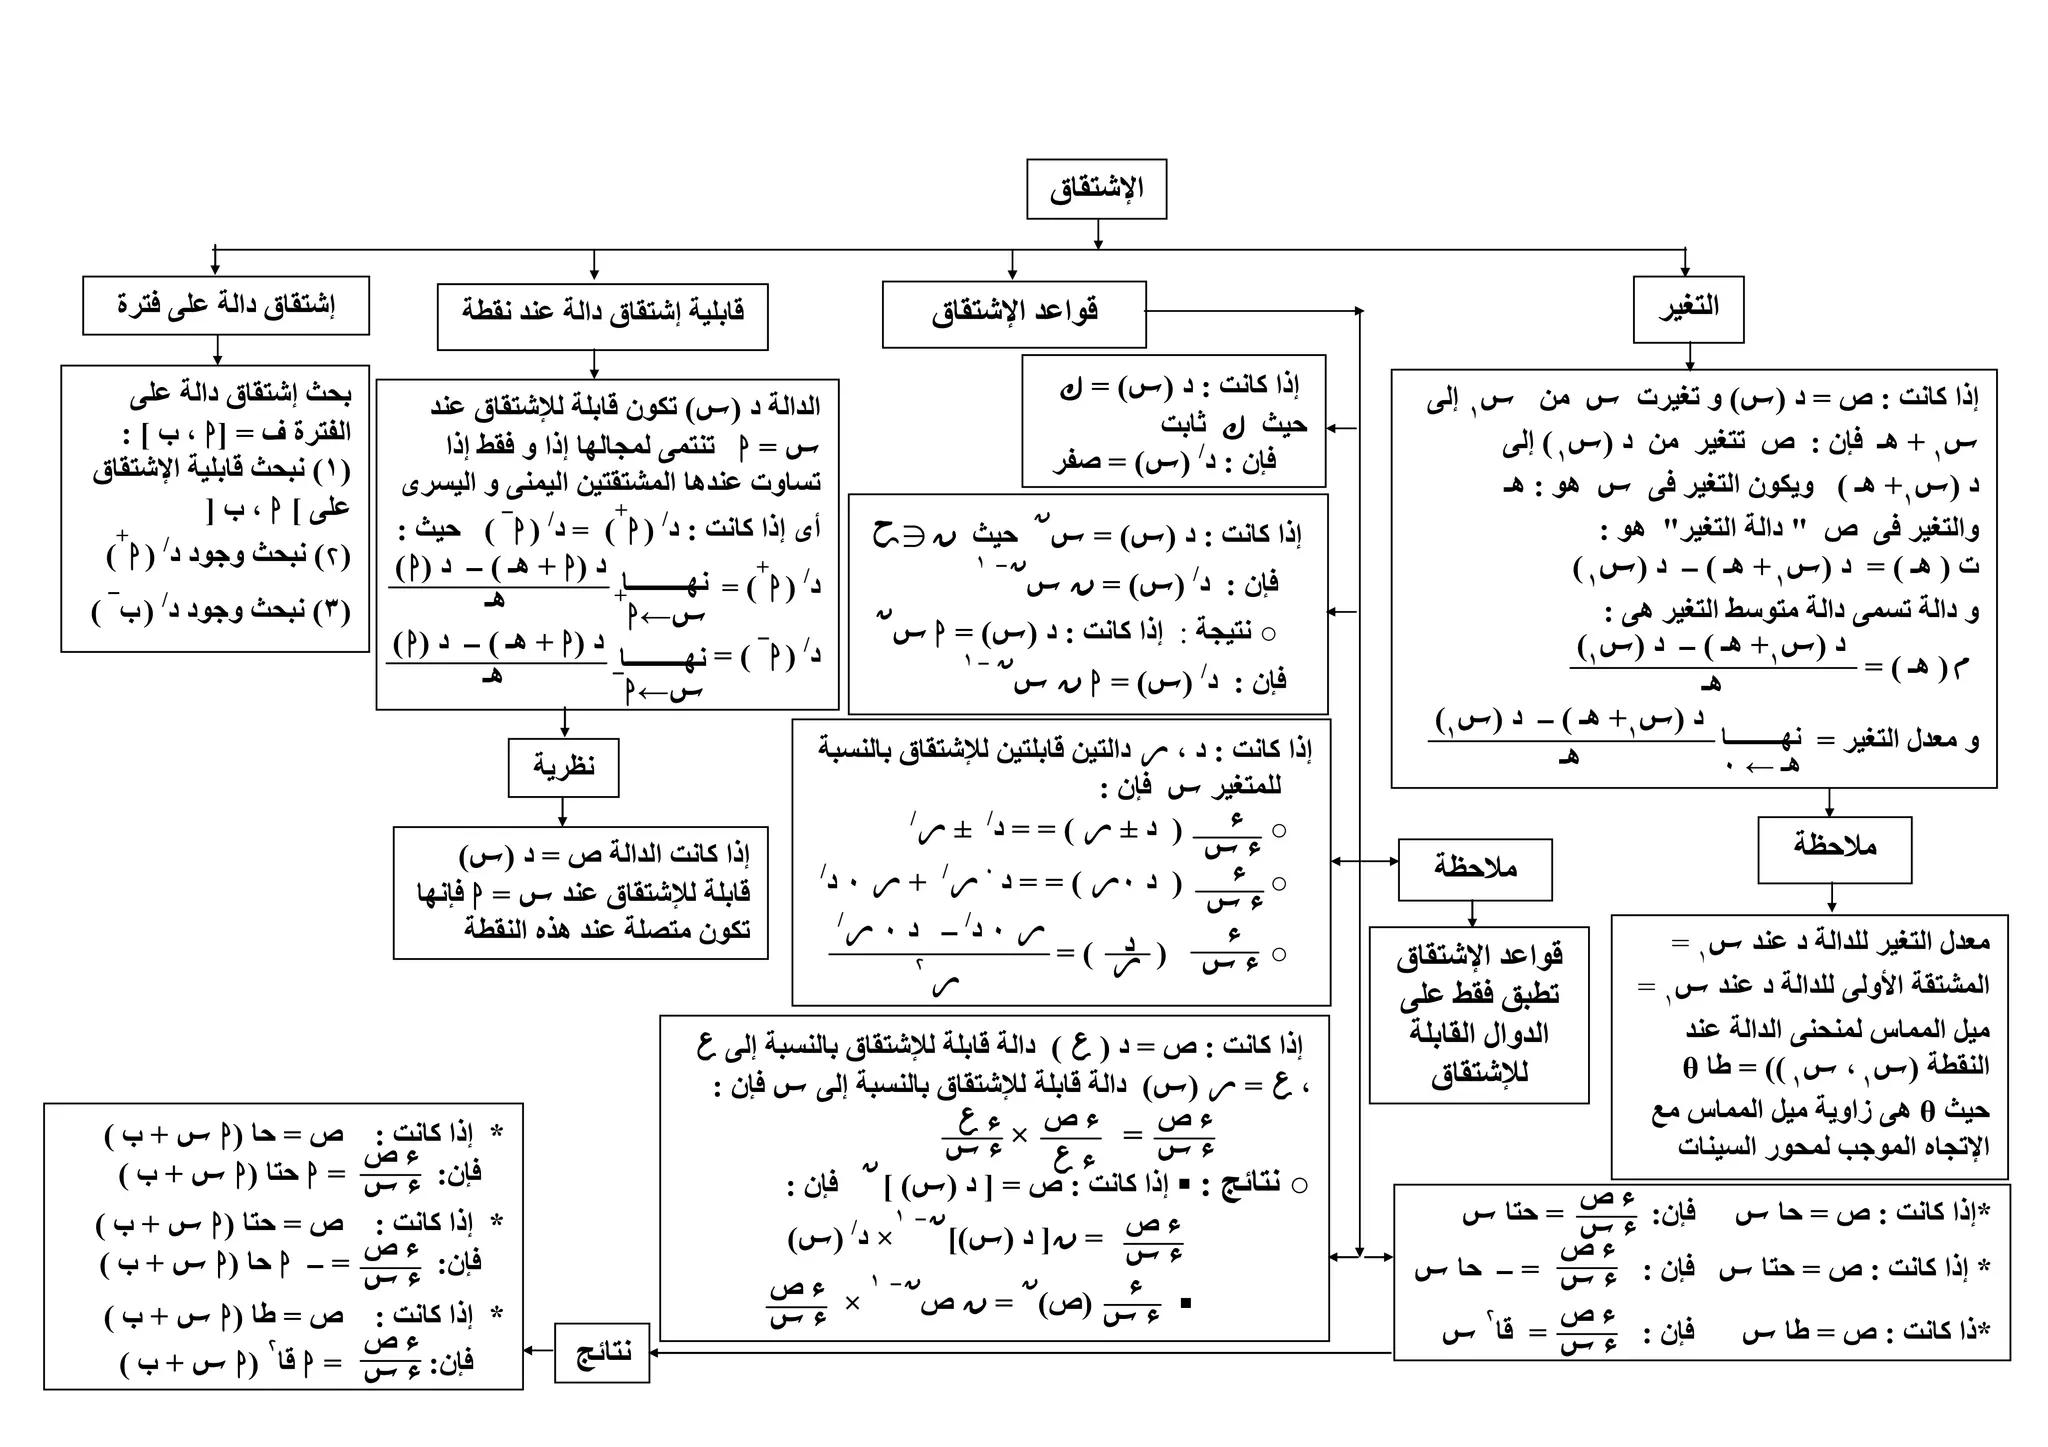 الإشتقاق
التغير
إذا كانت : ص = د (س) و تغيرت س من س١ إلى
س١ + هـ فإن : ص تتغير من د (س١) إلى
د (س١+ هـ ) ويكون التغير فى س هو : هـ
والتغير فى ص " دالة التغير" هو :
ت ( هـ ) = د (س١+ هـ ) – د (س١)
و دالة تسمى دالة متوسط التغير هى :
م( هـ ) = د (س١+ هـ ) – د (س١) / هـ
و معدل التغير = نهــــــا هـ ← ٠ د (س١+ هـ ) – د (س١) / هـ
ملاحظة
معدل التغير للدالة د عند س١ =
المشتقة الأولى للدالة د عند س١ =
ميل المماس لمنحنى الدالة عند
النقطة (س١ ، س١ )) = طا θ
حيث θ هى زاوية ميل المماس مع
الإتجاه الموجب لمحور السينات
قواعد الإشتقاق
إذا كانت : د (س) = ك
حيث ك ثابت
فإن : د/ (س) = صفر
إذا كانت : د (س) = سⁿ حيث ن ∈ ح
فإن : د/ (س) = ن س ن – ١
○ نتيجة : إذا كانت : د (س) = ا س ن
فإن : د/ (س) = ا ن س ن – ١
إذا كانت : د ، ر دالتين قابلتين للإشتقاق بالنسبة
للمتغير س فإن :
○ ء / ء س ( د ± ر ) = = د/ ± ر/
○ ء / ء س ( د ٠ ر ) = = د ٠ ر/ + ر ٠ د/
○ ء / ء س ( د / ر ) = ر ٠ د/ – د ٠ ر/ / ر٢
ملاحظة
قواعد الإشتقاق
تطبق فقط على
الدوال القابلة
للإشتقاق
إذا كانت : ص = د ( ع ) دالة قابلة للإشتقاق بالنسبة إلى ع
، ع = ر (س) دالة قابلة للإشتقاق بالنسبة إلى س فإن :
ء ص / ء س = ء ص / ء ع × ء ع / ء س
○ نتائج : ▪ إذا كانت : ص = [ د (س) ] ن فإن :
ء ص / ء س = ن[ د (س)] ن – ١ × د/ (س)
▪ ء / ء س (ص)ن = ن ص ن – ١ × ء ص / ء س
*إذا كانت : ص = حا س فإن: ء ص / ء س = حتا س
* إذا كانت : ص = حتا س فإن : ء ص / ء س = – حا س
*ذا كانت : ص = طا س فإن : ء ص / ء س = قا٢ س
نتائج
* إذا كانت : ص = حا (ا س + ب )
فإن: ء ص / ء س = ا حتا (ا س + ب )
* إذا كانت : ص = حتا (ا س + ب )
فإن: ء ص / ء س = – ا حا (ا س + ب )
* إذا كانت : ص = طا (ا س + ب )
فإن: ء ص / ء س = ا قا٢ (ا س + ب )
قابلية إشتقاق دالة عند نقطة
الدالة د (س) تكون قابلة للإشتقاق عند
س = ا تنتمى لمجالها إذا و فقط إذا
تساوت عندها المشتقتين اليمنى و اليسرى
أى إذا كانت : د/ (ا+) = د/ (ا–) حيث :
د/ (ا+) = نهــــــا س←ا+ د (ا + هـ ) – د (ا) / هـ
د/ (ا–) = نهــــــا س←ا– د (ا + هـ ) – د (ا) / هـ
نظرية
إذا كانت الدالة ص = د (س)
قابلة للإشتقاق عند س = ا فإنها
تكون متصلة عند هذه النقطة
إشتقاق دالة على فترة
بحث إشتقاق دالة على
الفترة ف = [ا ، ب ] :
(١) نبحث قابلية الإشتقاق
على ] ا ، ب [
(٢) نبحث وجود د/ (ا+)
(٣) نبحث وجود د/ (ب–)